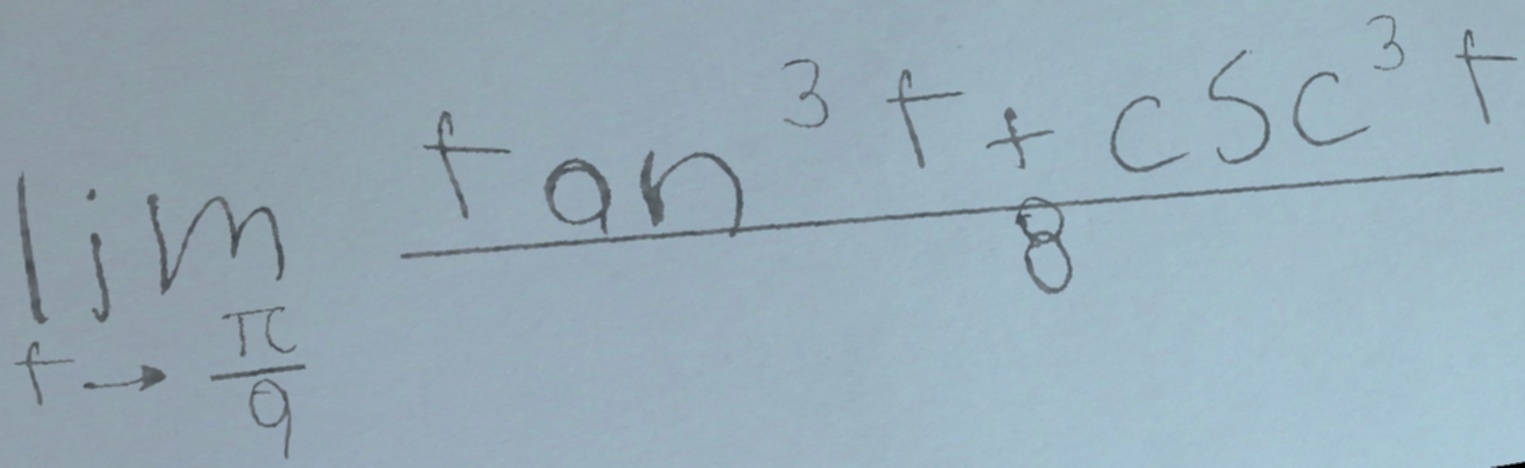 lim_{t→π/9} (tan³t + csc³t)/8